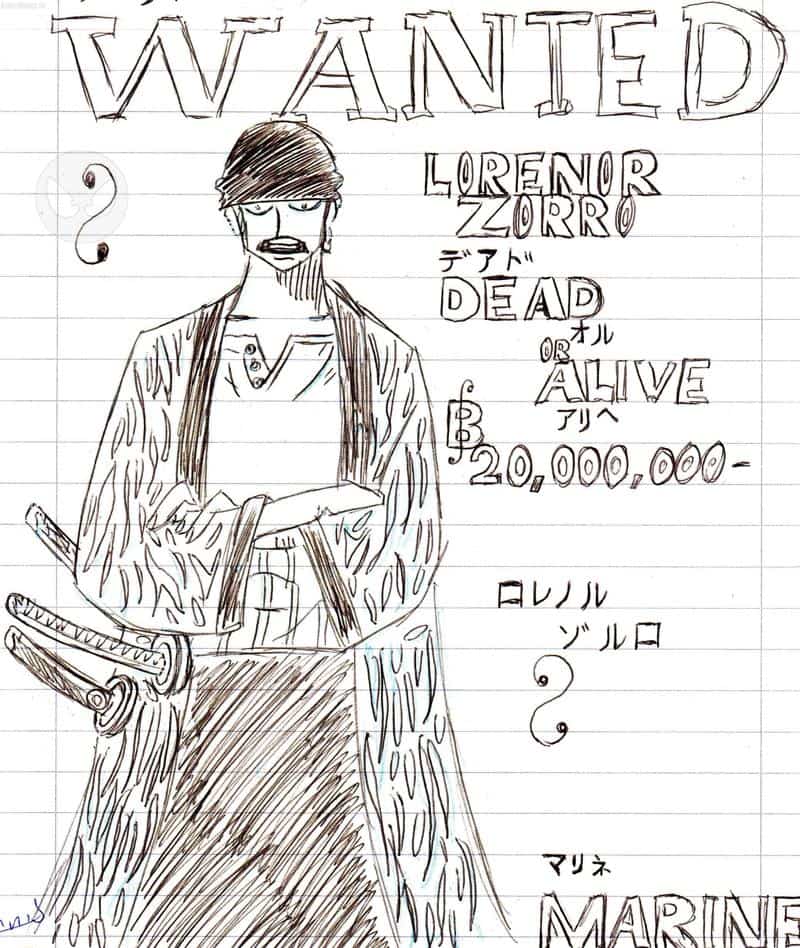 WANTED
LORENOR
ZORRO
デアド
DEAD
オル
OR
ALIVE
アリヘ
฿20,000,000-
ロレノル
ゾルロ
マリネ
MARINE